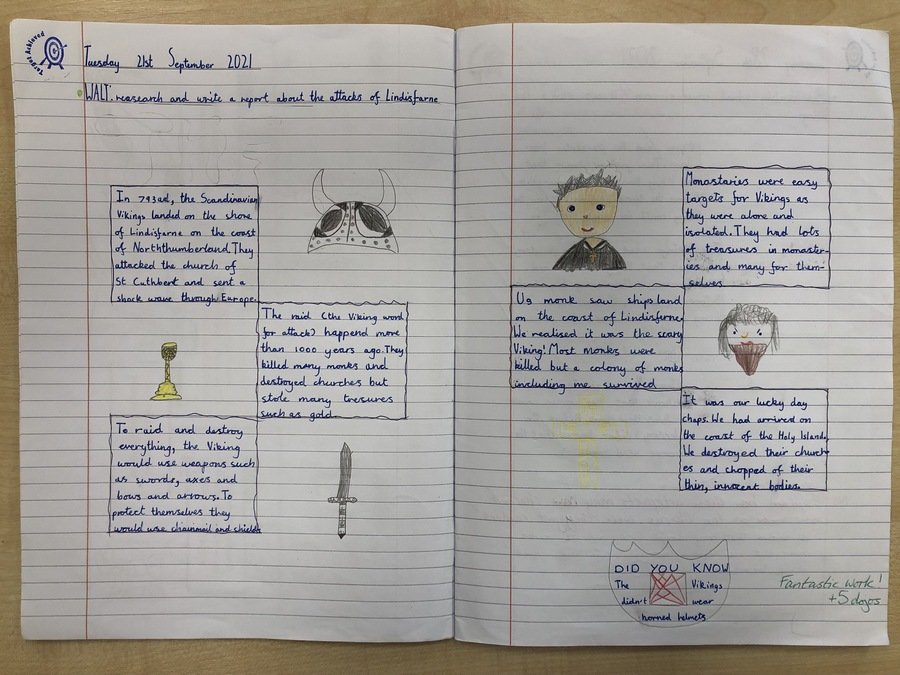 Target Achieved
Tuesday 21st September 2021
WALT: reasearch and write a report about the attacks of Lindisfarne
In 793ad, the Scandinavian
Vikings landed on the shore
of Lindisfarne on the coast
of Norththumberland. They
attacked the church of
St Cuthbert and sent a
shock wave through Europe.
The raid (the Viking word
for attack) happend more
than 1000 years ago. They
killed many monks and
destroyed churches but
stole many tresures
such as gold.
To raid and destroy
everything, the Viking
would use weapons such
as swords, axes and
bows and arrows. To
protect themselves they
would use chainmail and shields
Monastaries were easy
targets for Vikings as
they were alone and
isolated. They had lots
of treasures in monaster-
ies and many for them-
selves.
Us monk saw ships land
on the coast of Lindisfarne.
We realised it was the scary
Viking! Most monks were
killed but a colony of monks
including me survived
It was our lucky day
chaps. We had arrived on
the coast of the Holy Island.
We destroyed their church-
es and chopped of their
thin, innocent bodies.
DID YOU KNOW
The Vikings
didn't wear
horned helmets
Fantastic work!
+5 dojos